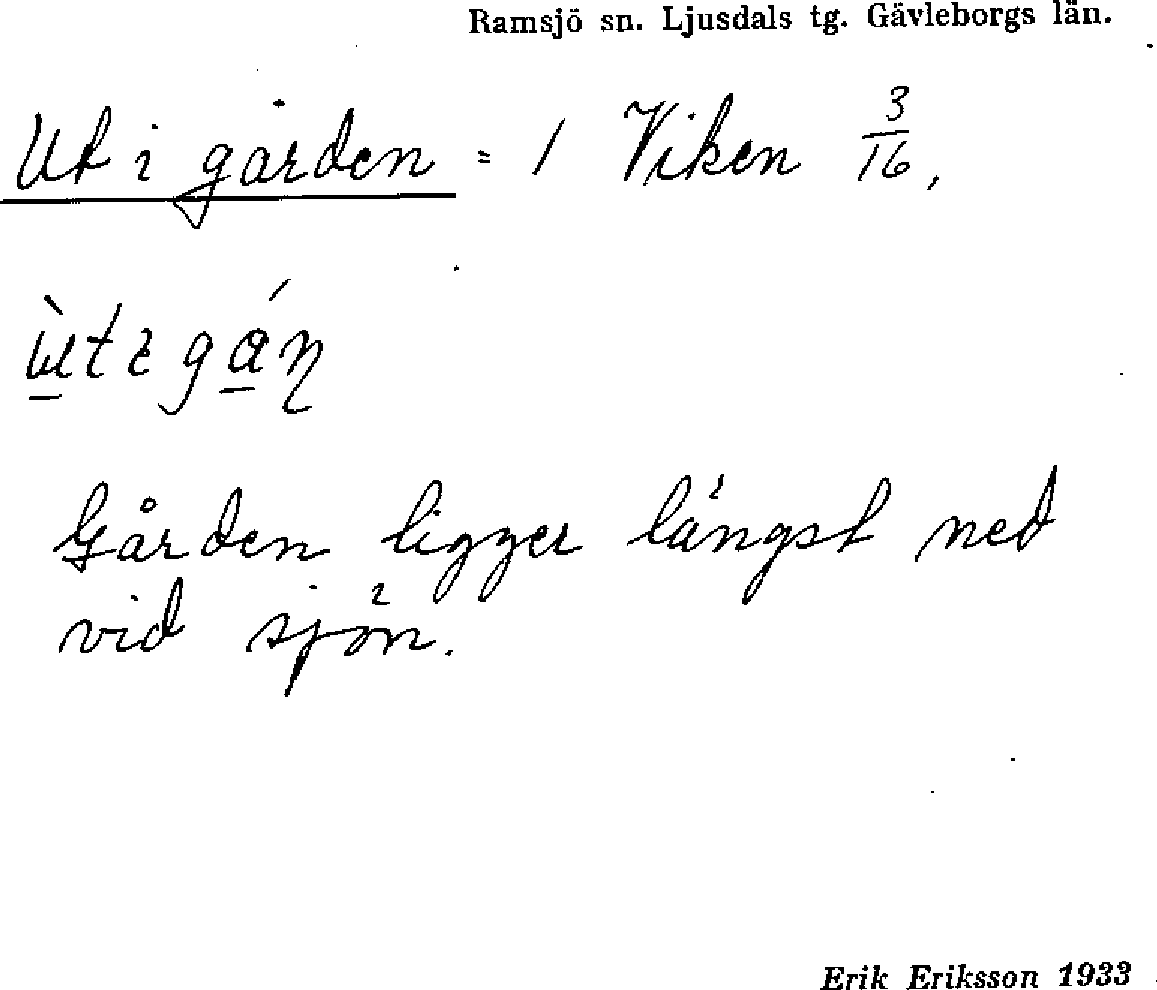 Ramsjö sn. Ljusdals tg. Gävleborgs län.
Ut i gården = 1 Viken 3/16,
Gården ligger längst ned
vid sjön.
Erik Eriksson 1933